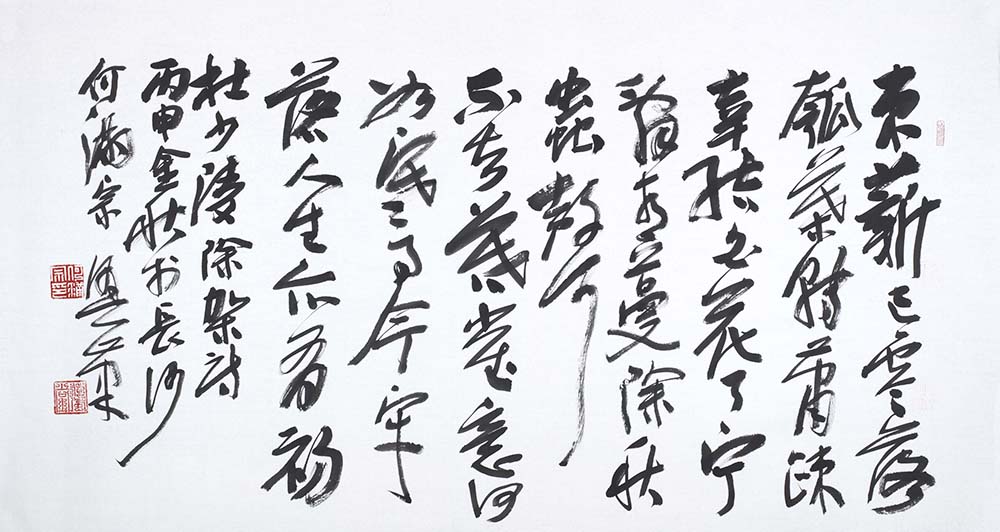 束薪已零落
瓠葉轉蕭疎
幸結白花了宁
辭青蔓除秋
蟲聲
不去暮雀意何
如寒事今牢
落人生亦有初
杜少陵除架詩
丙申金秋於長沙
何滿宗